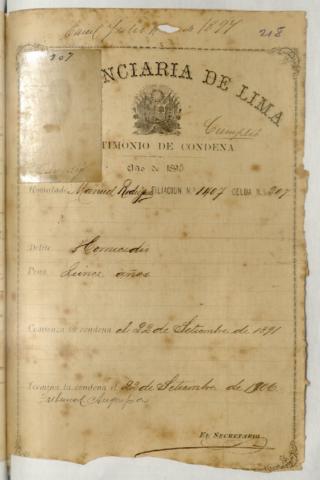 Julio de 1897
218
207
NCIARIA DE LIMA
Cumplió
TIMONIO DE CONDENA
Año de 1895
Rematado Manuel Rodgz FILIACION N.º 1407 CELDA N.º 207
Delito Homicidio
Pena Quince años
Comienza la condena el 22 de Setiembre de 1891
Termina la condena el 22 de Setiembre de 1906
Tribunal Arequipa
EL SECRETARIO